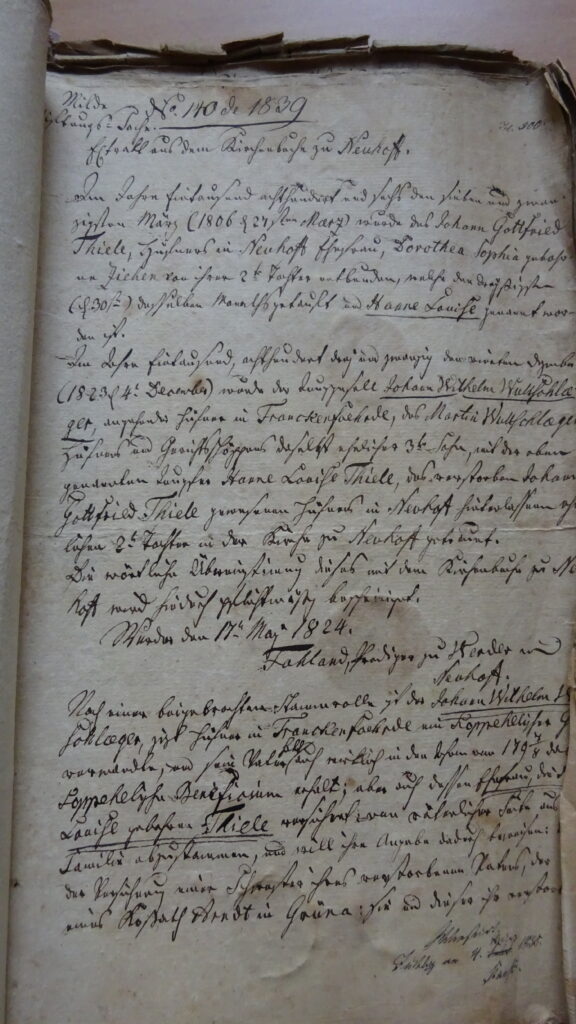 Milde No. 140 de 1839
Stiftungs-Sache.
Extrakt aus dem Kirchenbuche zu Neuhoff.
Im Jahre Eintausend achthundert und sechs den sieben und zwan
zigsten März (1806 d 27sten März) wurde des Johann Gottfried
Thiele, Hüfners in Neuhoff Ehefrau, Dorothea Sophia gebor
ne Zichen von ihrer 2t Tochter entbunden, welche den dreißigsten
(d 30st) desselben Monaths getauft und Hanne Louise genannt wor
den ist.
Im Jahre Eintausend, achthundert drei und zwanzig den vierten Dezembr
(1823 d 4t December) wurde der Junggesell Johann Wilhelm Wullschlæ
ger, angehender Hüfner in Franckenfoehrde, des Martin Wullschlæger
Hüfners und Gerichtsschöppen daselbst ehelicher 3te Sohn, mit der oben
genannten Jungfer Hanne Louise Thiele, des verstorben Johann
Gottfried Thiele gewesenen Hüfners in Neuhoff hinterlassenen ehe
lichen 2t Tochter in der Kirche zu Neuhoff getraut.
Die wörtliche Übereinstimmung dieses mit dem Kirchenbuche zu Neu
hoff wird hiedurch pflichtmäßig bescheinigt.
Werder den 17t May 1824.
Fahland, Prediger zu Werder und
Neuhoff.
Nach einer beigebrachten Stammrolle ist der Johann Wilhelm
schlæger, jetzt Hüfner in Franckenfoehrde ein Koppehelischer
verwandte, und sein Vater auch wirklich in den von 179 das
Koppehelische Beneficium erhalt; aber auch dessen Ehefrau, die
Louise geborne Thiele versichert von väterlicher Seite aus
Familie abzustammen, und will ihre Angabe dadurch beweisen:
der Versicherung einer Schwester ihres verstorbenen Vaters, der
eines Kossath Arendt in Grüna: sie und dieser ihr verstor
an 4.